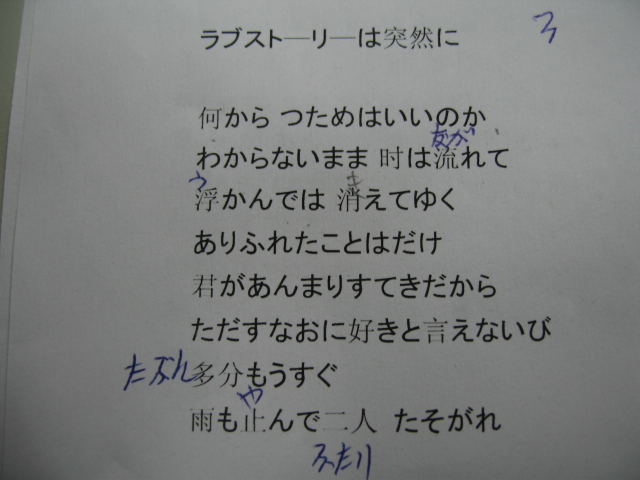 ラブスト―リ―は突然に ろ
何から つためはいいのか
なが
わからないまま 时は流れて
う き
浮かんでは 消えてゆく
ありふれたことはだけ
君があんまりすてきだから
ただすなおに好きと言えないび
たぶん多分もうすぐ
や
雨も止んで二人 たそがれ
ふたり